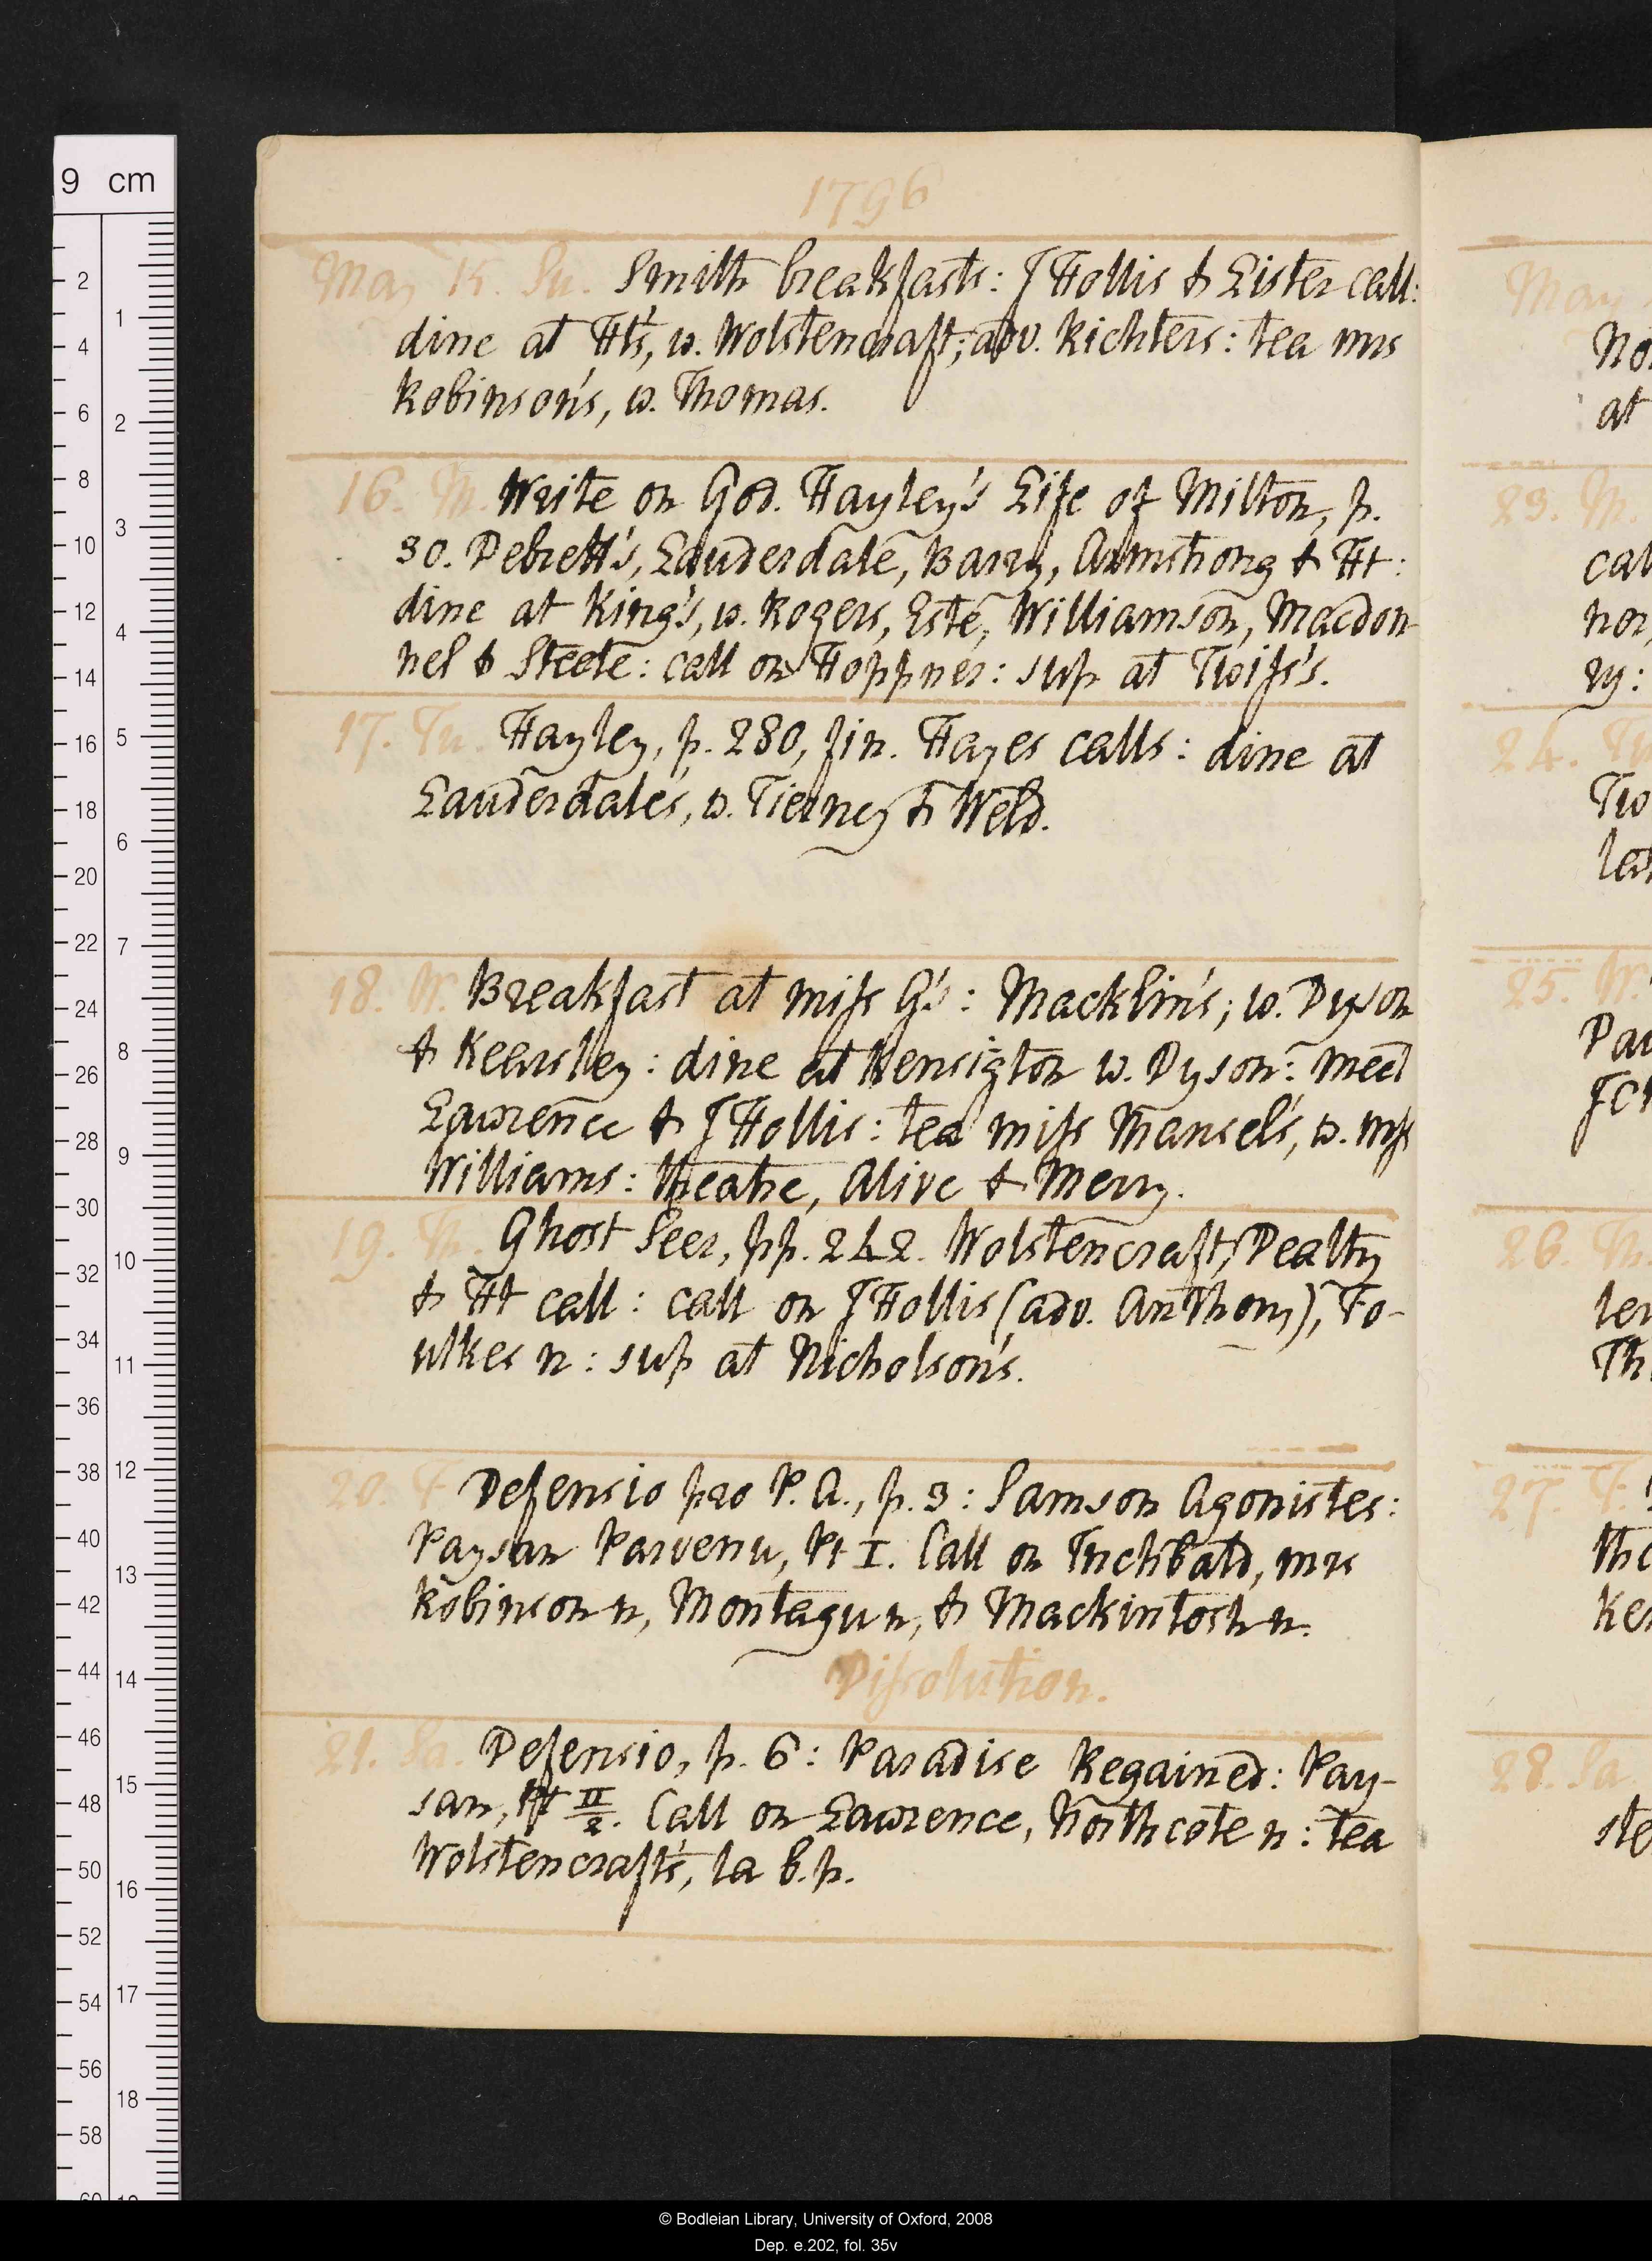 1796
May 15. Su. Smith breakfasts: J Hollis & Lister call:
dine at Ht's, w. Wolstencraft; adv. Richters: tea mrs
Robinson's, w. Thomas.
16. M. Write on God. Hayley's Life of Milton, p.
30. Debrett's, Lauderdale, Barry, Armstrong & Ht:
dine at King's, w. Rogers, Este, Williamson, Macdon
nel & Steele: call on Hoppner: sup at Twiss's.
17. Tu. Hayley, p. 280, fin. Hayes calls: dine at
Lauderdale's, w. Tierney & Weld.
18. W. Breakfast at miss G's: Macklin's; w. Dyson
& Kearsley: dine at Kensigton w. Dyson: meet
Lawrence & J Hollis: tea miss Mansel's, w. mss
Williams: theatre, Alive & Merry.
19. Th. Ghost Seer, pp. 242. Wolstencraft, Dealty
& Ht call: call on J Hollis (adv. Anthony), Fo-
ulkes n: sup at Nicholson's.
20. F. Defensio pro P. A., p. 3: Samson Agonistes:
Paysan Parvenu, Pt I. Call on Inchbald, mrs
Robinson n, Montagu n, & Mackintosh n.
Dissolution.
21. Sa. Defensio, p. 6: Paradise Regained: Pay-
san, Pt II/2. Call on Lawrence, Northcote n: tea
Wolstencraft's, la b. p.
May
No
at
23. M.
cal
nor
ry:
24. Tu
Tw
la
25. W.
Pa
J C
26. Th.
ler
Th
27. F.
the
Ke
28. Sa
ste
9 cm
2
4
6
8
10
12
14
16
18
20
22
24
26
28
30
32
34
36
38
40
42
44
46
48
50
52
54
56
58
1
2
3
4
5
6
7
8
9
10
11
12
13
14
15
16
17
18
© Bodleian Library, University of Oxford, 2008
Dep. e.202, fol. 35v